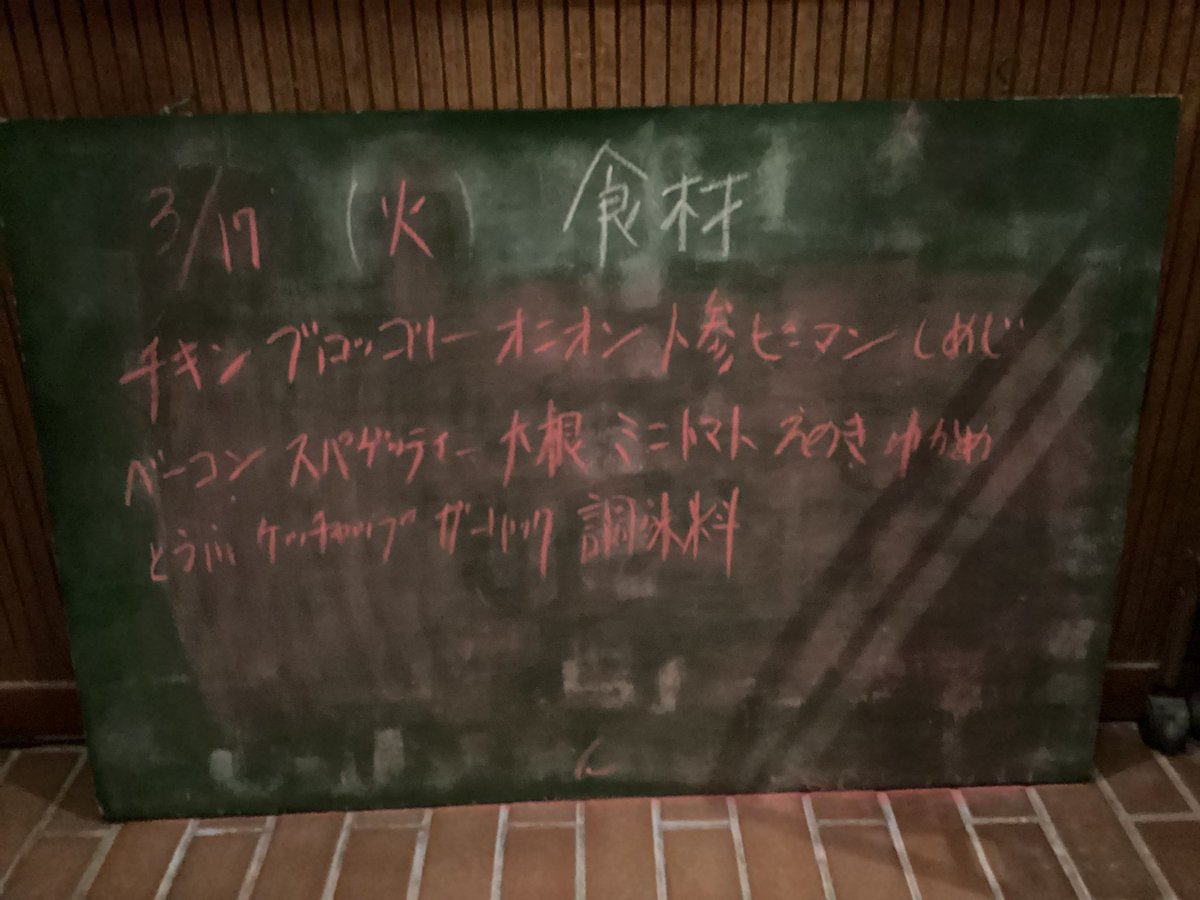 3/17 (火) 食材
チキン ブロッコリー オニオン 人参 ピーマン しめじ
ベーコン スパゲッティー 大根 ミニトマト えのき わかめ
とうふ ケッチャップ ガーリック 調味料